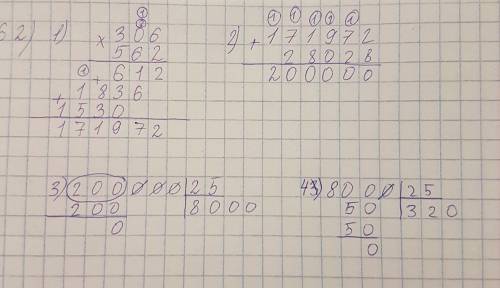 62) 1) × 306
562
+ 612
+ 1836
1530
171972
2) + 171972
28028
200000
3) 200000 25
200 8000
0
4) 8000 25
50 320
50
0